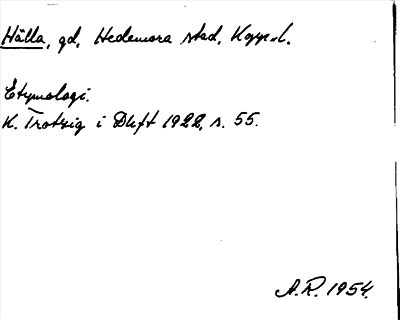 Hälla, gd, Hedemora stad, Kopp. l.
Etymologi.
K. Trotzig i Dhft 1922, s. 55.
A.R. 1954.